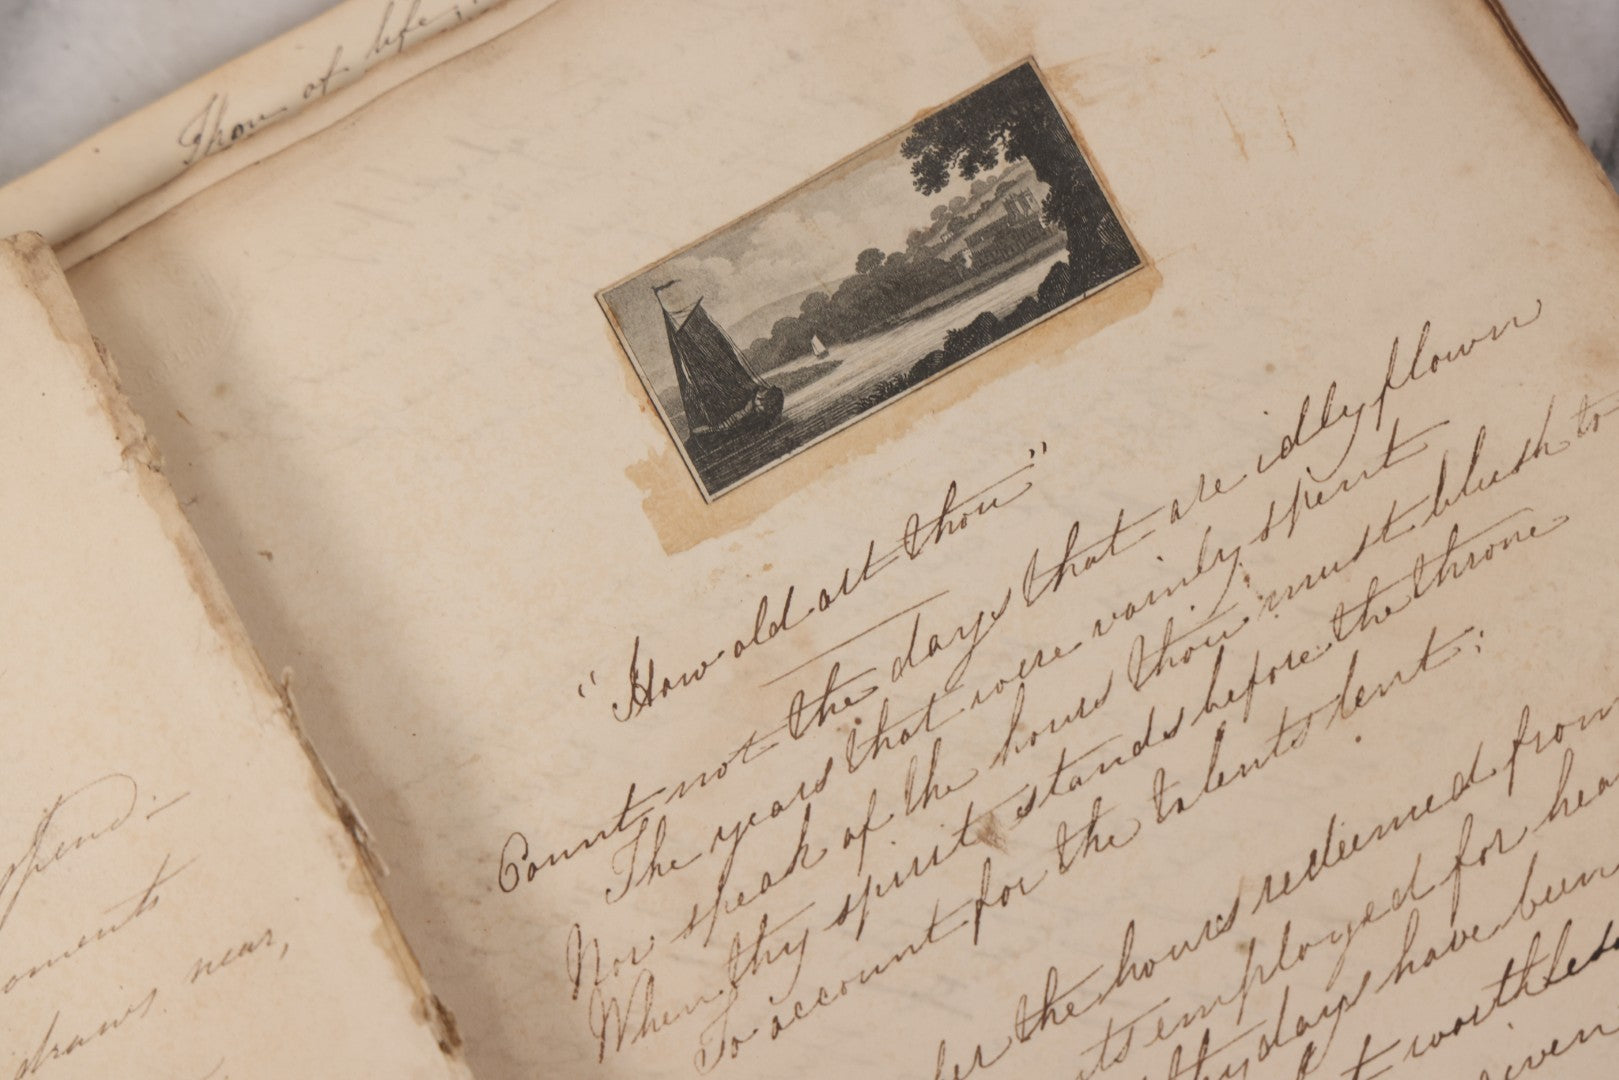 Thou of life,
spend:
oments
draws near,
"How old art thou"
Count not the days that are idly flown
The years that were vainly spent
Nor speak of the hours thou must blush to
When thy spirit stands before the throne
To account for the talents lent;
the hours redeemed from
employed for hea
days have been
worthless
iven